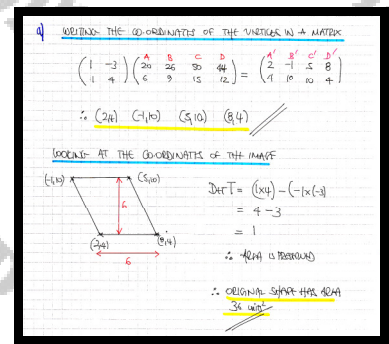 a) WRITING THE CO-ORDINATES OF THE VERTICES IN A MATRIX
A B C D A' B' C' D'
(1 -3) (20 26 50 44) = (2 -1 5 8)
(-1 4) (6 9 15 12) (4 10 10 4)
∴ (2,4) (-1,10) (5,10) (8,4)
LOOKING AT THE CO-ORDINATES OF THE IMAGE
(-1,10) (5,10)
6
(2,4) (8,4)
6
DET T = (1x4) - (-1x(-3))
= 4 - 3
= 1
∴ AREA IS PRESERVED
∴ ORIGINAL SHAPE HAS AREA
36 units²